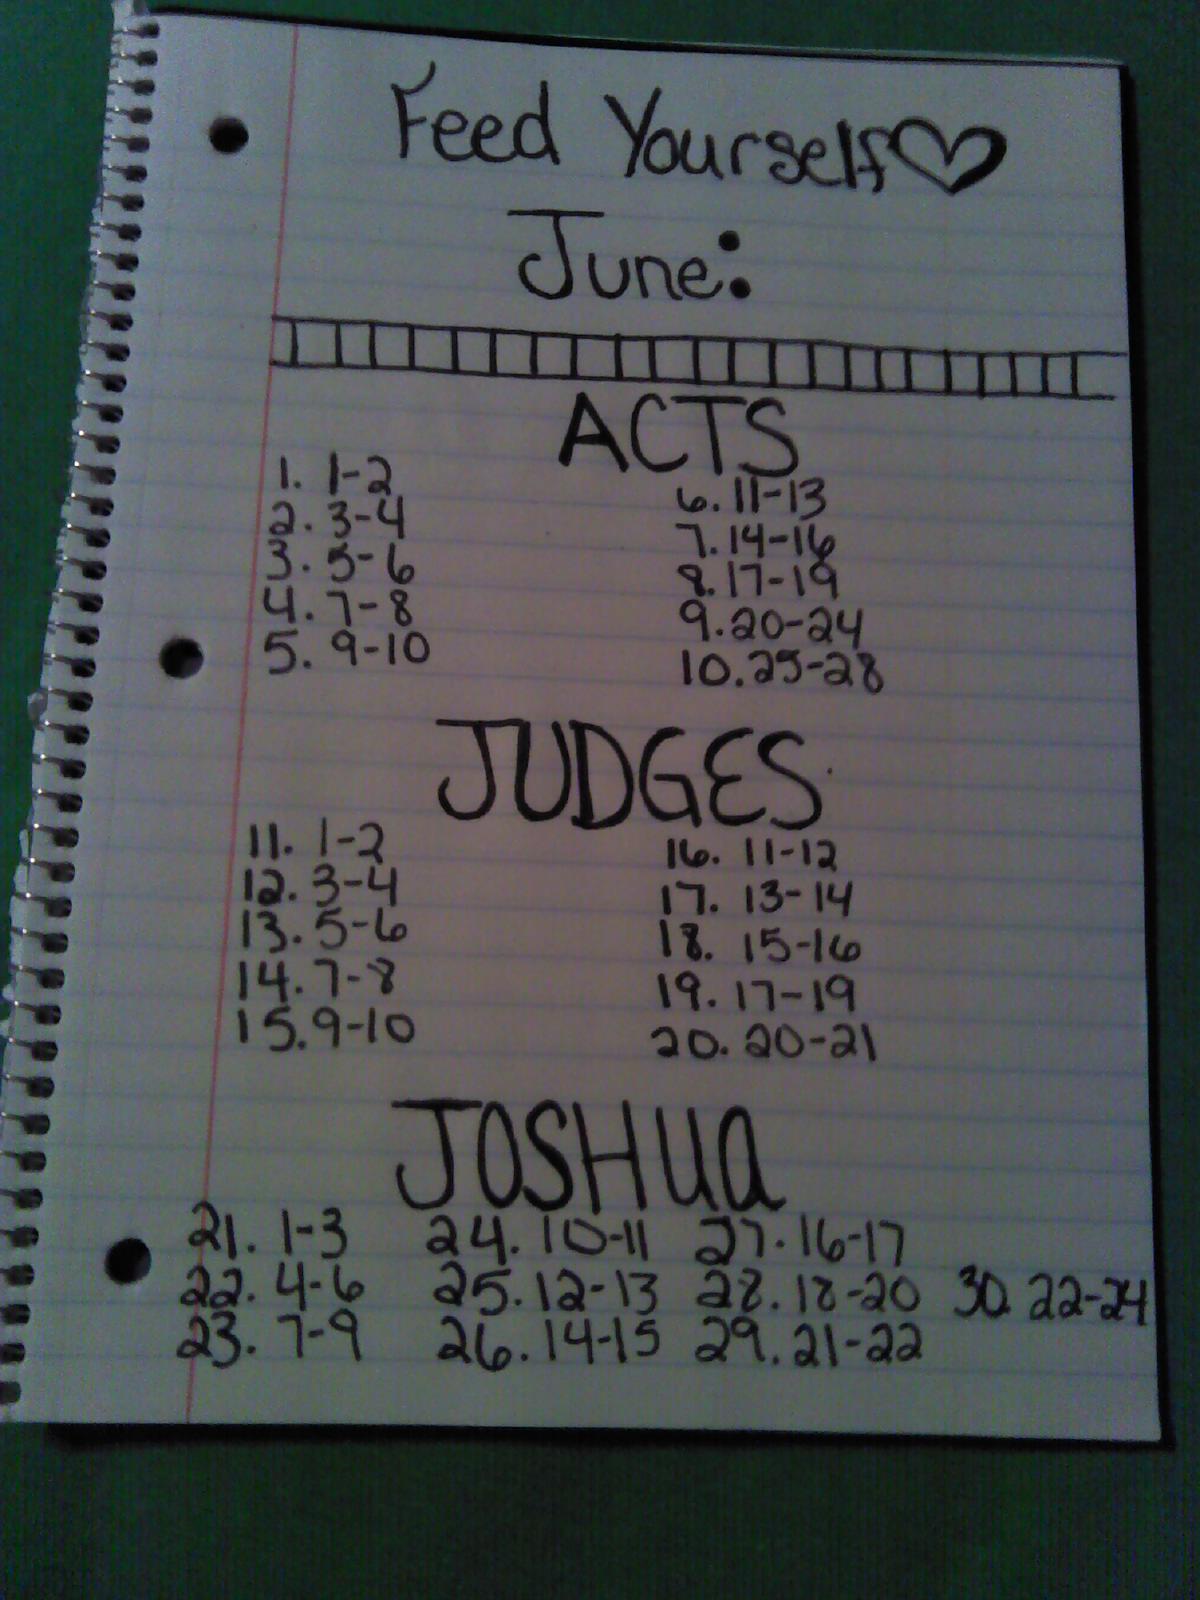 Feed Yourself
June:
ACTS
1. 1-2
2. 3-4
3. 5-6
4. 7-8
5. 9-10
6. 11-13
7. 14-16
8. 17-19
9. 20-24
10. 25-28
JUDGES
11. 1-2
12. 3-4
13. 5-6
14. 7-8
15. 9-10
16. 11-12
17. 13-14
18. 15-16
19. 17-19
20. 20-21
JOSHUA
21. 1-3
22. 4-6
23. 7-9
24. 10-11
25. 12-13
26. 14-15
27. 16-17
28. 18-20
29. 21-22
30. 22-24